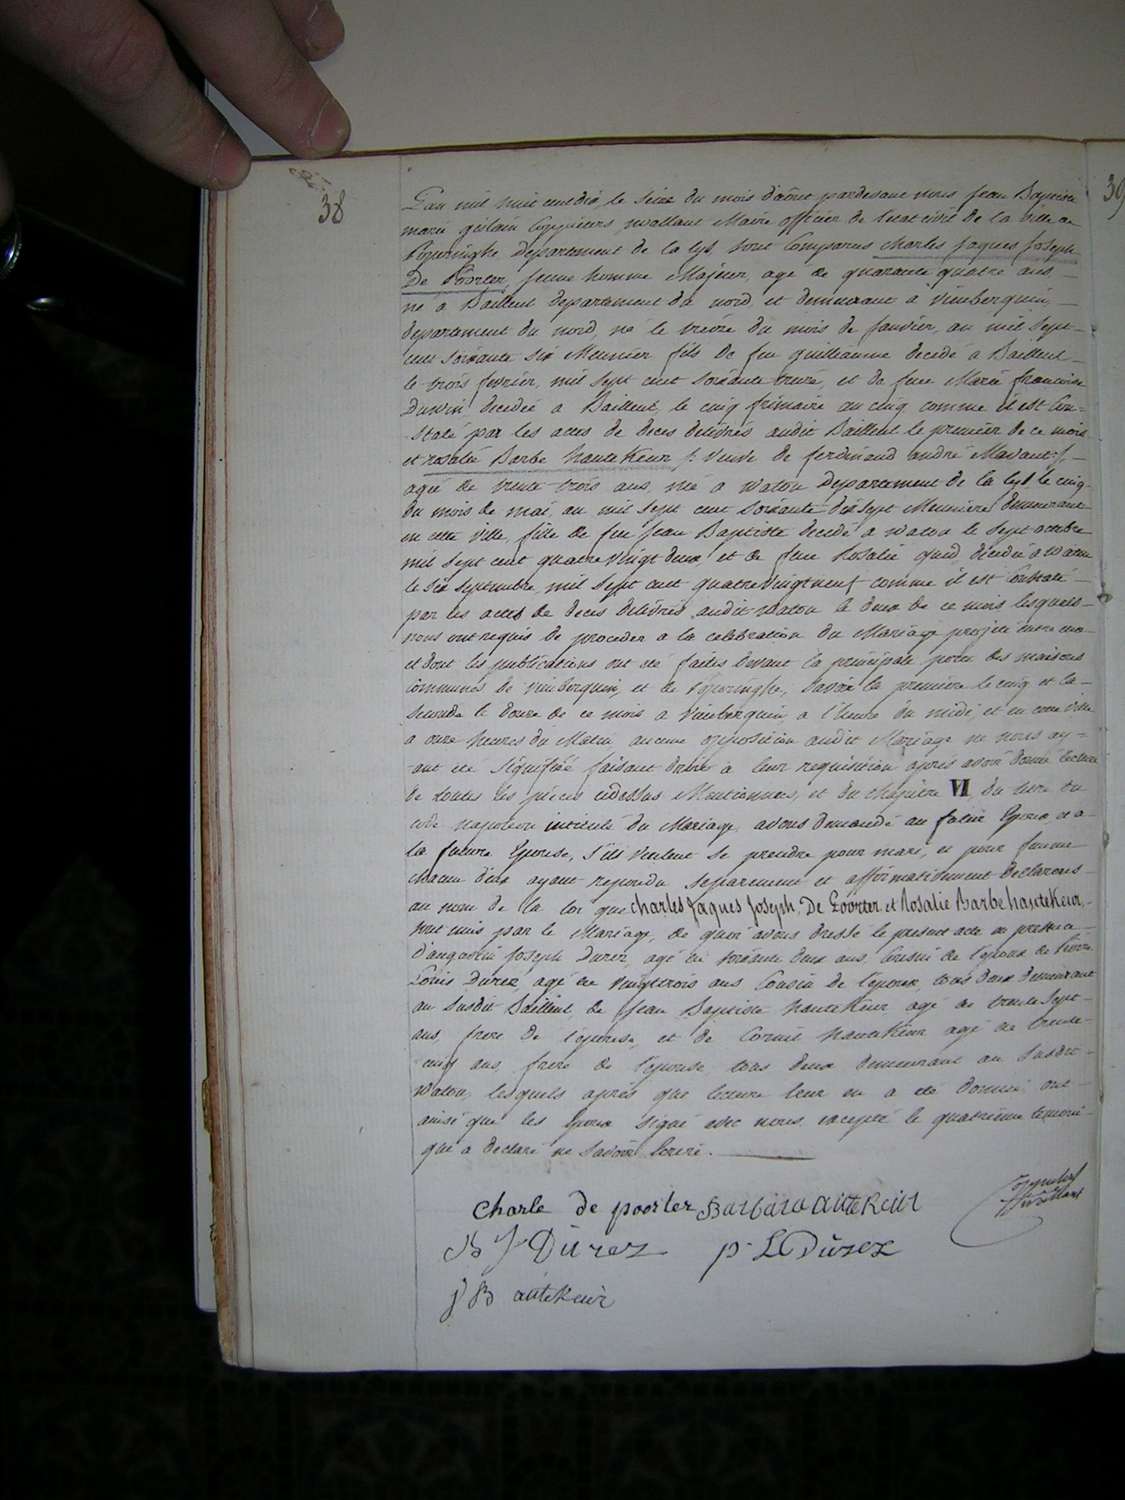 38
39
L'an mil huit cent dix, le seize du mois d'août pardevant nous Jean Baptiste
marie guilain wallaert Maire officier de l'etat civil de la Ville de
Poperinghe, departement de la lys, sont Comparus charles Jaques Joseph
De Poorter, jeune homme Majeur, agé de quarante quatre ans
né a Bailleul departement du nord, et demeurant a vieuberquin,
departement du nord, né le du mois de janvier, an mil sept
cent soixante six Meunier fils de feu guilleaume decedé a Bailleul
le trois fevrier, mil sept cent soixante treize, et de feue Marie francoise
decedée a Bailleul, le cinq frimaire an cinq comme il est Con=
staté par les actes de deces delivrés audit Bailleul le premier de ce mois
et rosalie Barbe hauteKeur /: Veuve de ferdinand andré :/
agée de trente trois ans, née a watou departement de la lys le cinq
du mois de mai, an mil sept cent soixante dix sept Meunière demeurante
en cette ville, fille de feu Jean Baptiste decedé a watou le sept octobre
mil sept cent quatre vingt deux, et de feue Rosalie decedée a watou
le dix septembre, mil sept cent quatre vingt neuf comme il est Constaté
par les actes de deces delivrés audit watou le deux de ce mois lesquels
nous ont requis de proceder a la celebration du Mariage projeté entre eux
et dont les publications ont été faites devant la principale porte des maisons
communes de vieuberquin, et de Poperinghe, Savoir la première le cinq et la
seconde le douze de ce mois a vieuberquin, a l'heure du midi, et en cette ville
a onze heures du Matin, aucune opposition audit Mariage ne nous ay=
ant été signifiée faisant droit a leur requisition après avoir donné lecture
de toutes les pièces cidessus Mentionnées, et du chapitre VI, du titre du
code napoleon intitulé du Mariage, avons demandé au futur Epoux et a
la future Epouse, S'ils veulent se prendre pour mari, et pour femme
chacun d'eux ayant repondu separement et affirmativement declarons
au nom de la loi que charles Jaques Joseph, De Poorter, et Rosalie Barbe hauteKeur,
sont unis par le Mariage, de quoi avons dressé le present acte en presence
Joseph Durez, agé de soixante deux ans, Cousin de l'epoux de Pierre
Louis Durez, agé de vingt trois ans Cousin de l'epoux, tous deux demeurant
au Susdit Bailleul, de Jean Baptiste hauteKeur agé de trente sept
ans, frere de l'epouse, et de Corneil hauteKeur agé de trente
cinq ans, frere de l'epouse, tous deux demeurant au Susdit
Watou, lesquels après que lecture leur en a été donnée, ont
ainsi que les Epoux signé avec nous, excepté le quatrième temoin
qui a declaré ne savoir Ecrire.
Charle de poorter Barbara auteKeur
J Durez p. L Durez
J B auteKeur